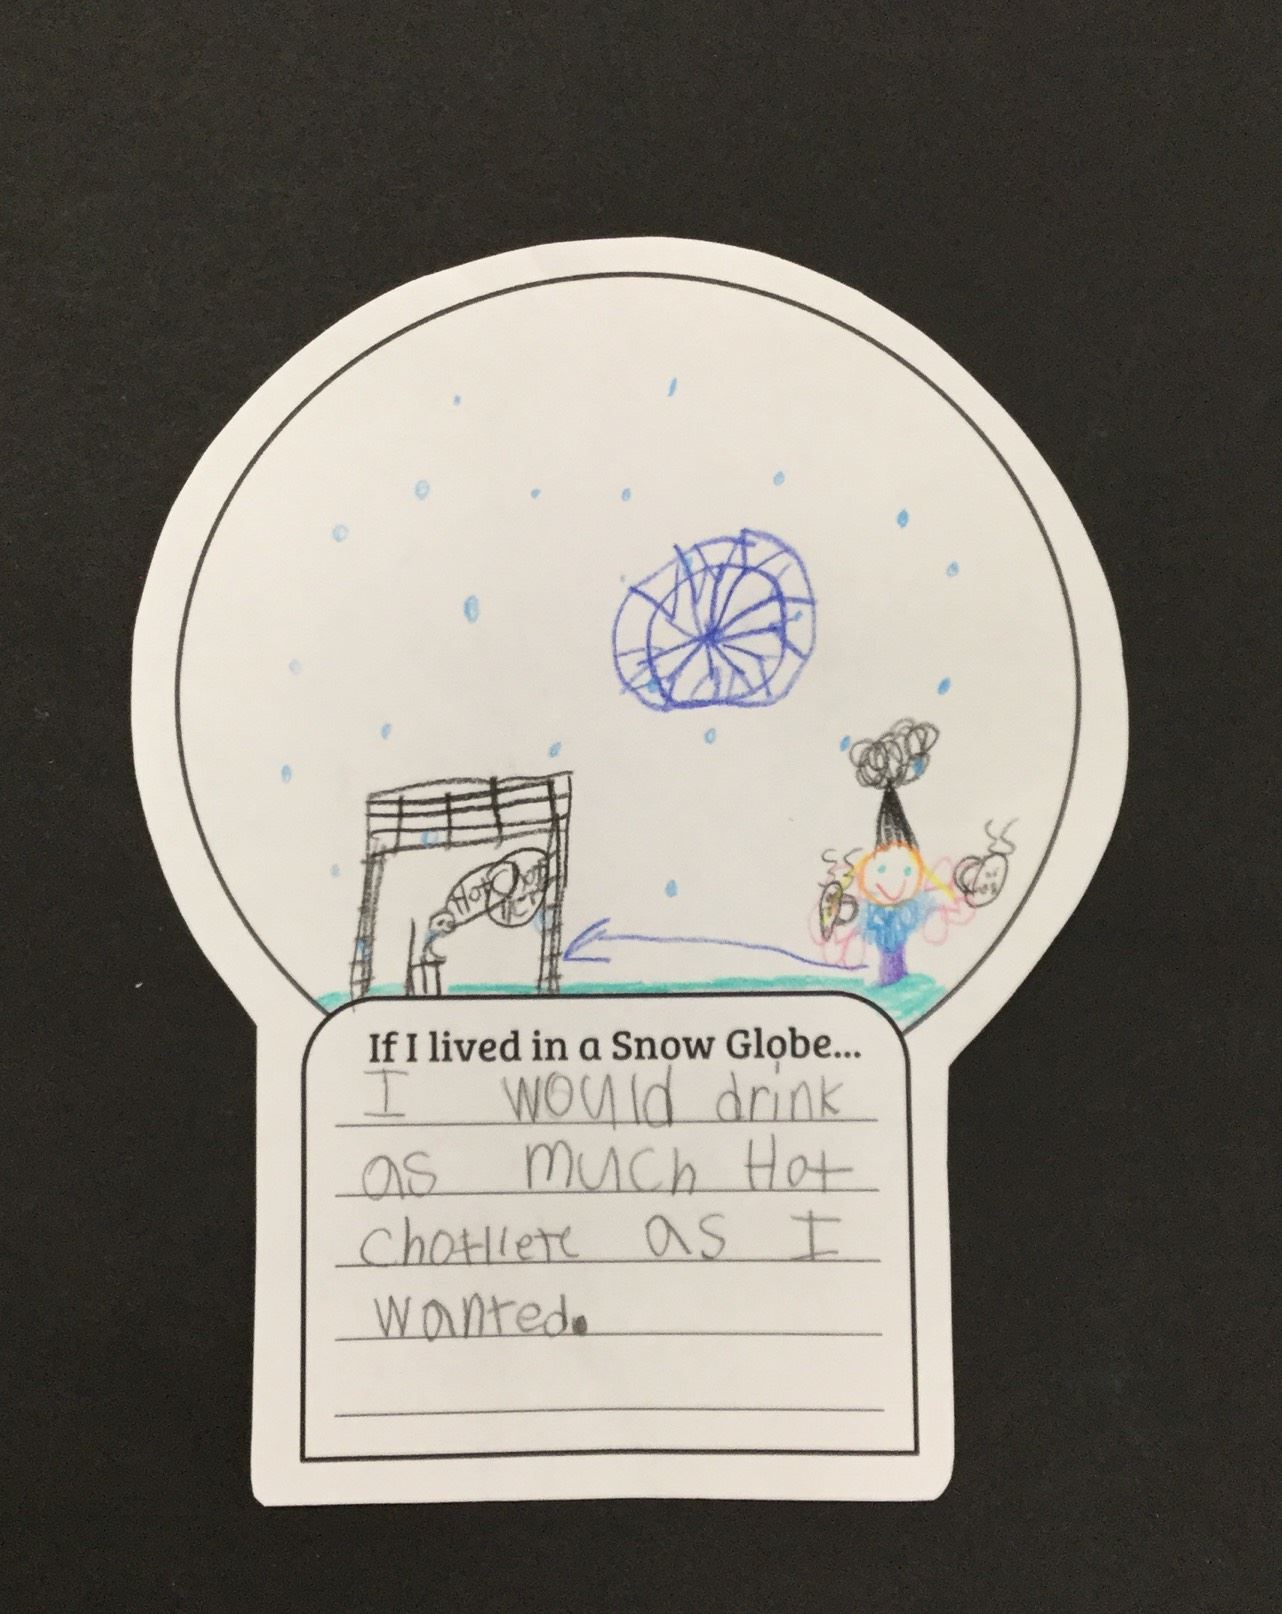 Hot
If I lived in a Snow Globe...
I would drink
as much Hot
chotllete as I
wanted.